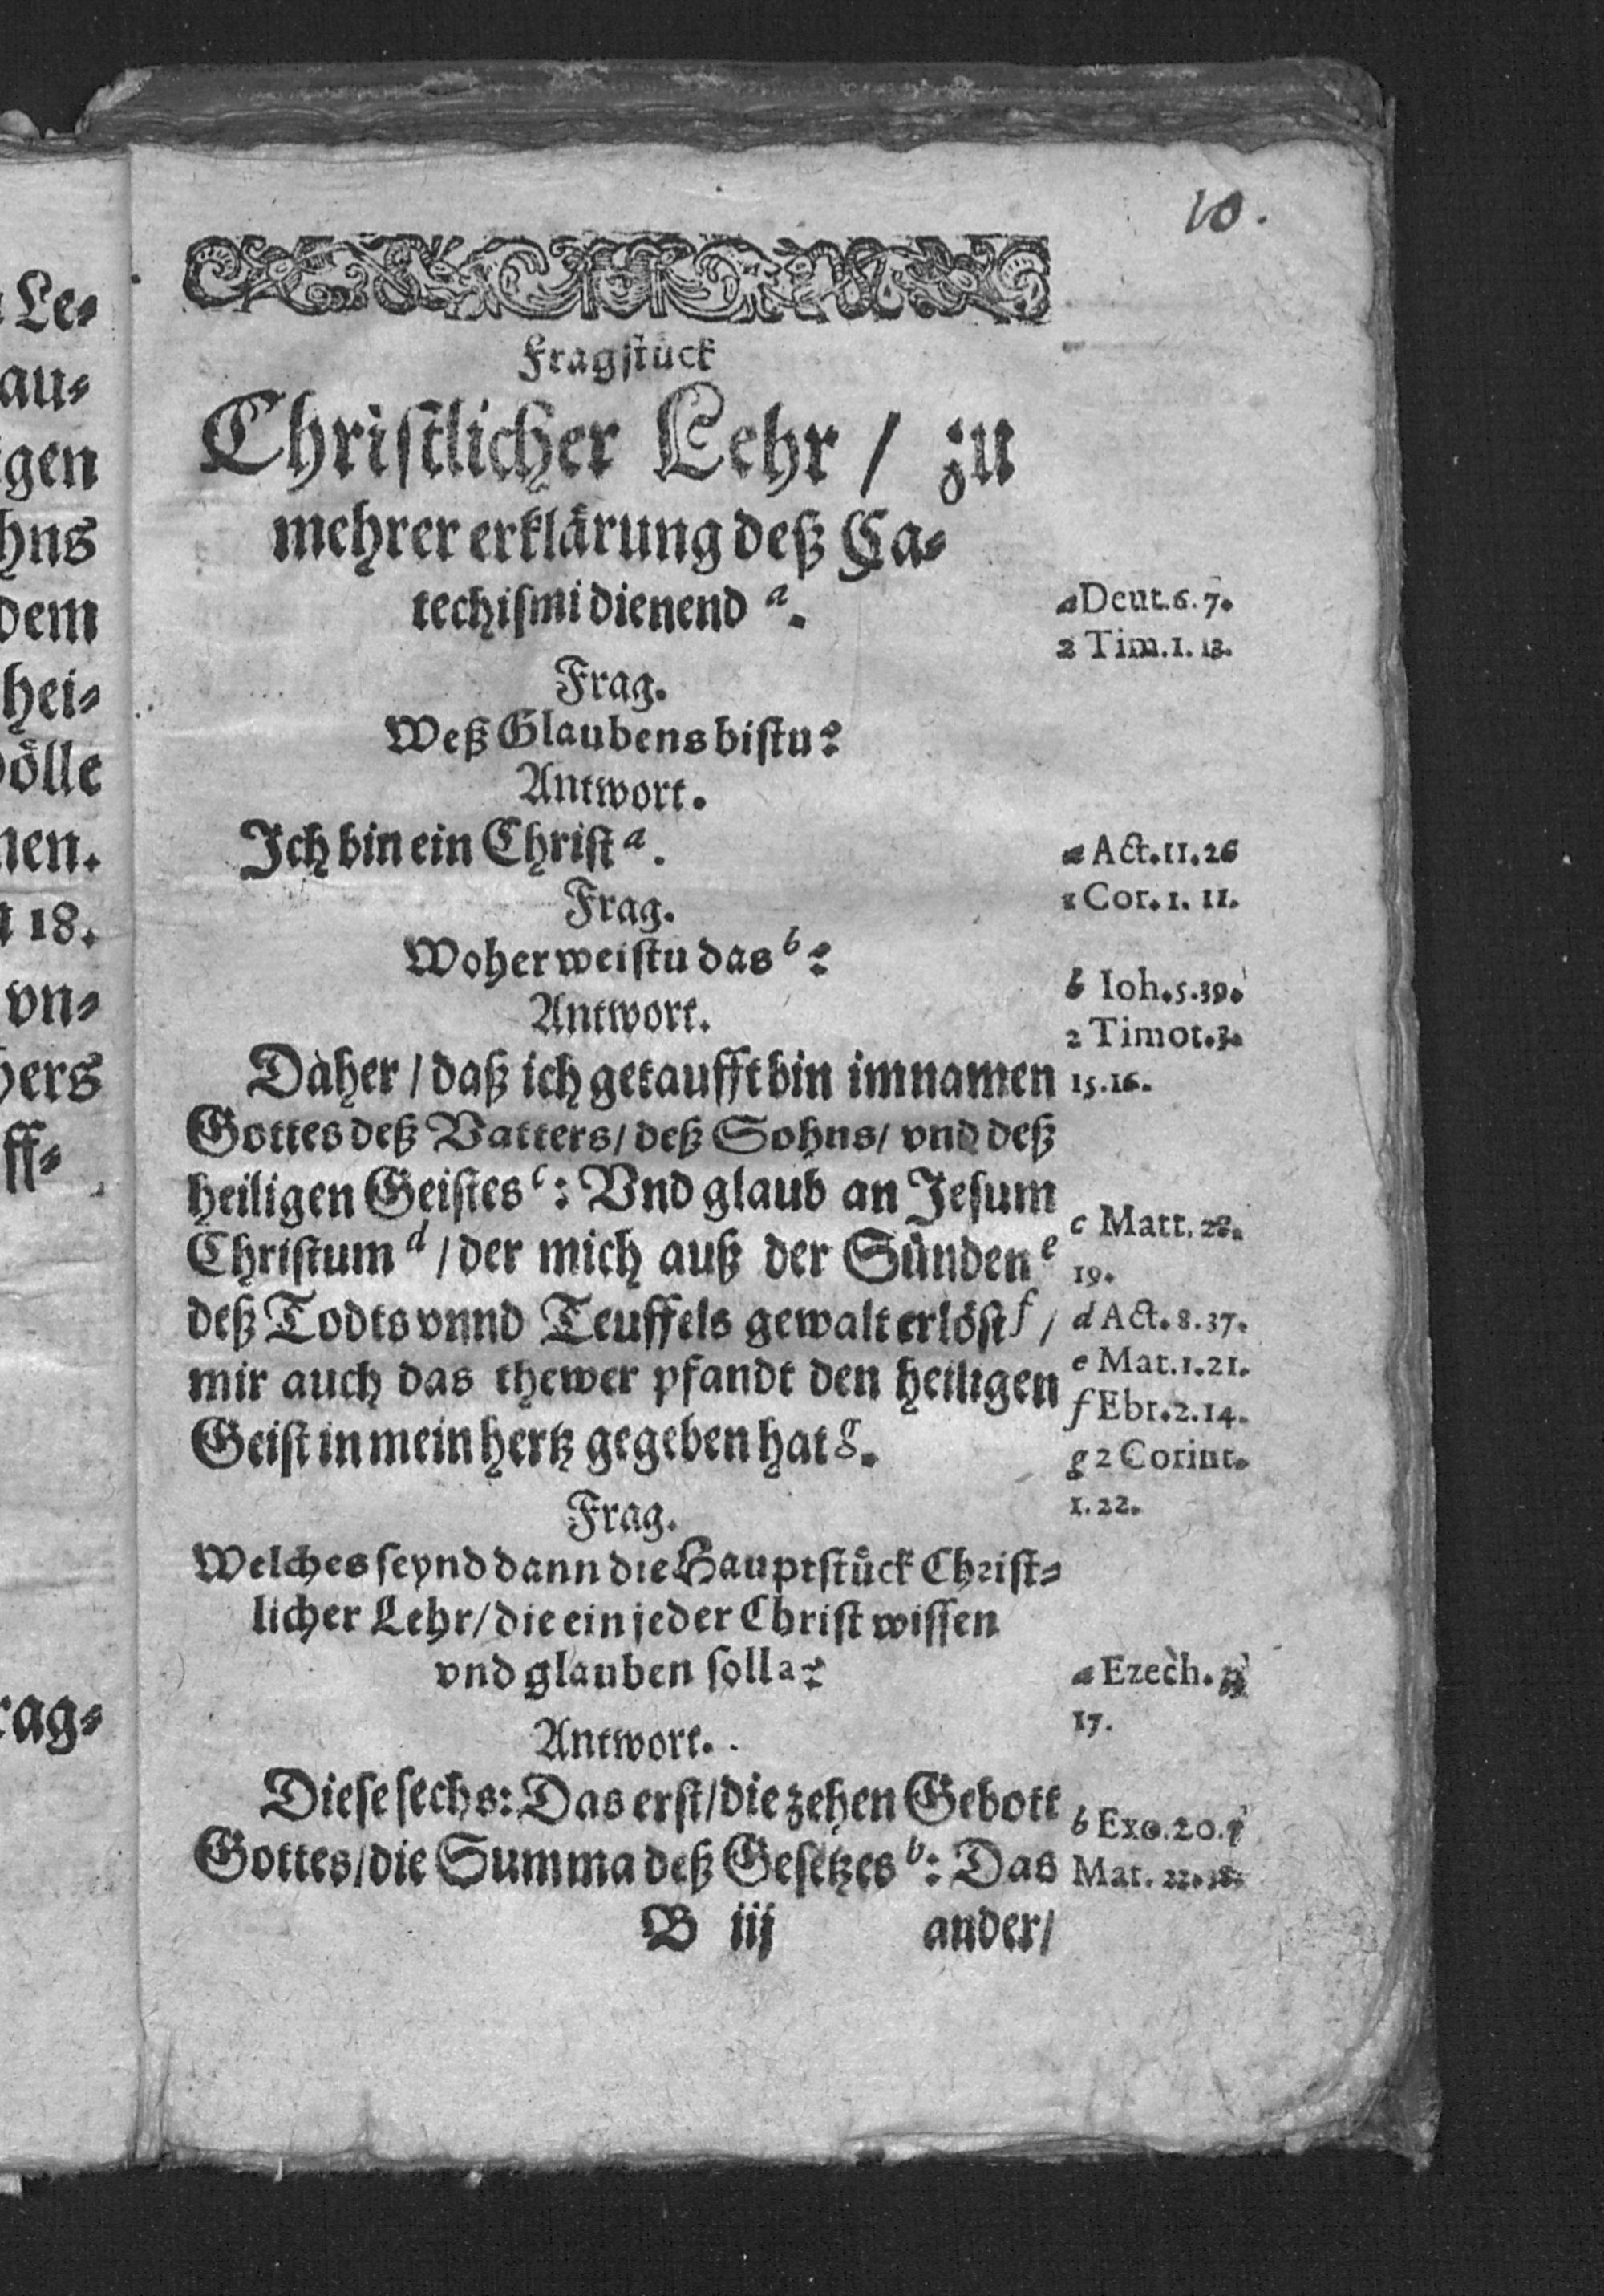 10.
Fragstück
Christlicher Lehr / zu
mehrer erklärung deß Ca-
techismi dienend a.
a Deut. 6. 7.
2 Tim. 1. 13.
Frag.
Weß Glaubens bistu?
Antwort.
Ich bin ein Christ a.
a Act. 11. 26
1 Cor. 1. 11.
Frag.
Woher weistu das b?
b Ioh. 5. 39.
Antwort.
2 Timot. 3.
15. 16.
Daher / daß ich getaufft bin im namen
Gottes deß Vatters / deß Sohns / vnd deß
heiligen Geistes c: Vnd glaub an Jesum
Christum d / der mich auß der Sünden e
deß Todts vnnd Teuffels gewalt erlöst f /
mir auch das thewer pfandt den heiligen
Geist in mein hertz gegeben hat g.
c Matt. 28.
19.
d Act. 8. 37.
e Mat. 1. 21.
f Ebr. 2. 14.
g 2 Corint.
1. 22.
Frag.
Welches seynd dann die Hauptstück Christ-
licher Lehr / die ein jeder Christ wissen
vnd glauben soll a?
a Ezech.
17.
Antwort.
Diese sechs: Das erst / die zehen Gebott
Gottes / die Summa deß Gesetzes b: Das
b Exo. 20.
Mat. 22.
B iij
ander /
Le-
au-
gen
hns
dem
hei-
ölle
nen.
18.
vn-
hers
ff-
rag-